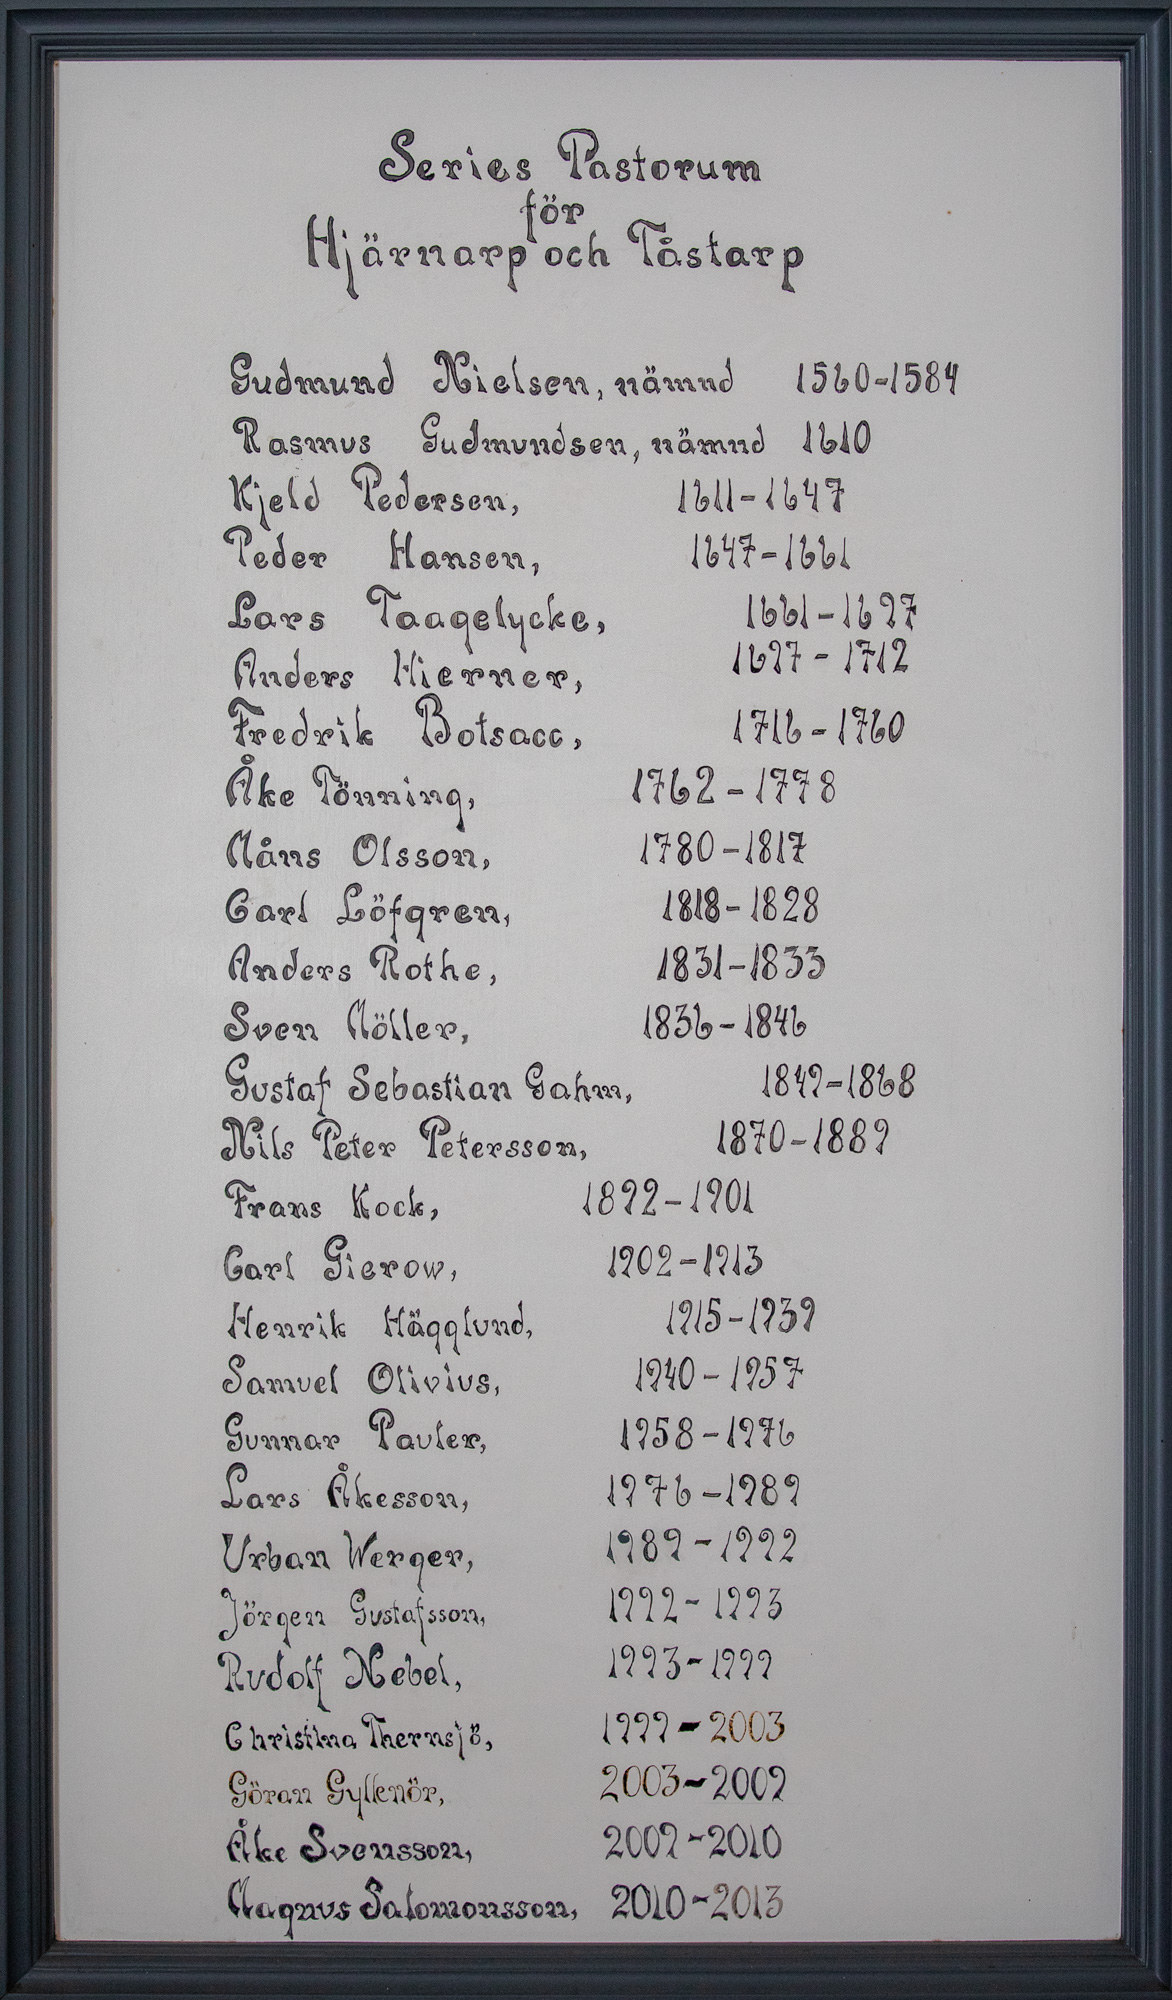 Series Pastorum
för
Hjärnarp och Tåstarp
Gudmund Nielsen, nämnd 1560-1584
Rasmus Gudmundsen, nämnd 1610
Kjeld Pedersen, 1611-1647
Peder Hansen, 1647-1661
Lars Taagelycke, 1661-1697
Anders Hierner, 1697-1712
Fredrik Botsacc, 1716-1760
Åke Tönning, 1762-1778
Måns Olsson, 1780-1817
Carl Löfgren, 1818-1828
Anders Rothe, 1831-1833
Sven Möller, 1836-1846
Gustaf Sebastian Gahm, 1849-1868
Nils Peter Petersson, 1870-1889
Frans Kock, 1892-1901
Carl Gierow, 1902-1913
Henrik Hägglund, 1915-1939
Samuel Olivius, 1940-1957
Gunnar Pauler, 1958-1976
Lars Åkesson, 1976-1989
Urban Werger, 1989-1992
Jörgen Gustafsson, 1992-1993
Rudolf Nebel, 1993-1999
Christina Thernsjö, 1999-2003
Göran Gyllenör, 2003-2009
Åke Svensson, 2009-2010
Magnus Salomonsson, 2010-2013